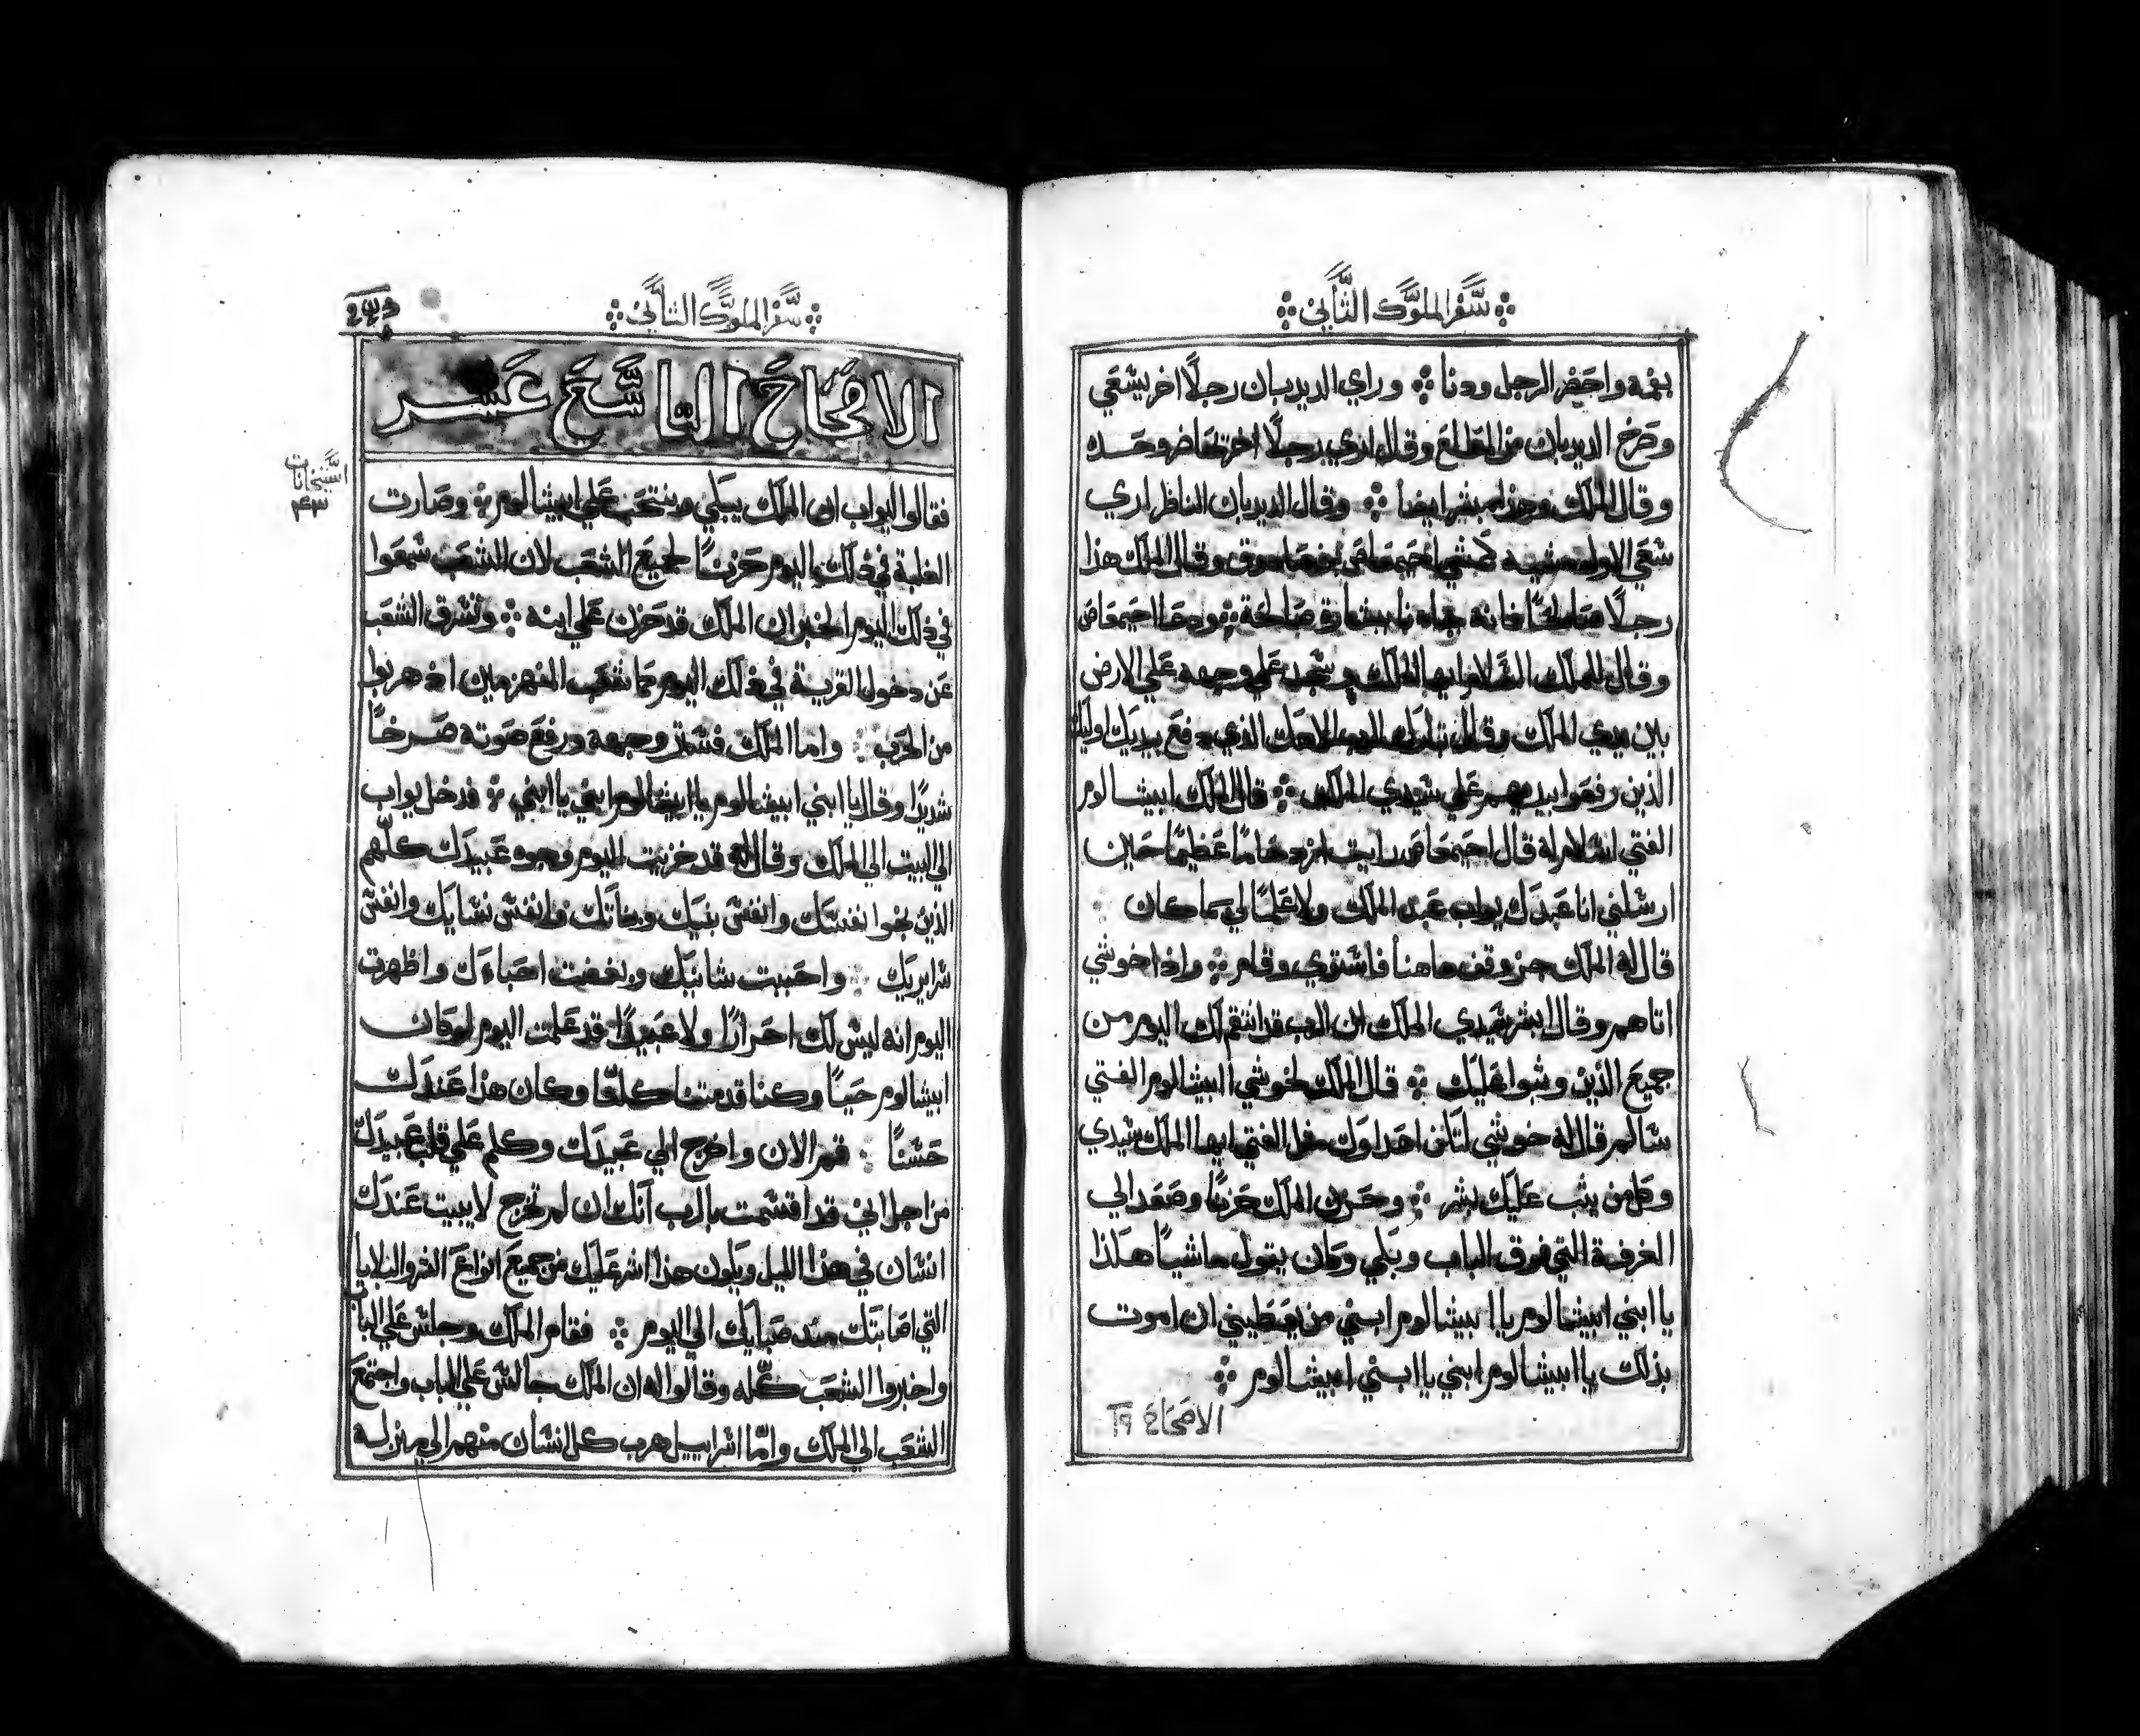 سفر الملوك الثاني
بفمه واحضر الرجل ودنا وراي الديدبان رجلًا اخر يسعي
وصرخ الديدبان من المطلع وقال اري رجلًا اخر يحاضر وحده
وقال الملك وهذا مبشر ايضا وقال الديدبان الناظر اري
سعي الاول مشيه كمشي احيمعاص بن صادوق وقال الملك هذا
رجلًا صالحًا فانه جاء نا ببشارة صالحة ودعا احيمعاص
وقال للملك السلام ايها الملك وسجد علي وجهه علي الارض
بين يدي الملك وقال تبارك الرب الاهك الذي دفع بيديك اوليك
الذين رفعوا ايديهم علي سيدي الملك قال الملك ابيشالوم
الفتي اسلام له قال احيمعاص رايت ازدحامًا عظيمًا حين
ارسلني انا عبدك يواب عبد الملك ولا علمًا لي بما كان
قال له الملك جز وقف هاهنا فاستوي وقام واذا خوشي
اتاهم وقال ابشر سيدي الملك ان الرب قد انتقم لك اليوم من
جميع الذين وثبوا عليك قال الملك لخوشي ابيشالوم الفتي
سالم قال له خوشي لتكن اعداوك مثل الفتي ايها الملك سيدي
وكل من يثب عليك بشر وحزن الملك حزنًا وصعد الي
الغرفة التي فوق الباب وبكي وكان يقول ماشيًا هكذا
يا ابني ابيشالوم يا ابيشالوم ابني من يعطيني ان اموت
بذلك يا ابيشالوم ابني يا ابني ابيشالوم
الاصحاح ١٩
سفر الملوك الثاني
الاصحاح التاسع عشر
فقالوا ليواب ان الملك يبكي وينتحب علي ابيشالوم وصارت
الغلبة في ذلك اليوم حزنًا لجميع الشعب لان الشعب سمعوا
في ذلك اليوم الخبر ان الملك قد حزن علي ابنه وتسرق الشعب
عن دخول القرية في ذلك اليوم كما شعب المنهزمين اذ هربوا
من الحرب واما الملك فستر وجهه ورفع صوته صرخًا
شديدًا وقال يا ابني ابيشالوم يا ابيشالوم ابني يا ابني فدخل يواب
الي البيت الي الملك وقال له قد خزيت اليوم وجوه عبيدك كلهم
الذين نجوا نفسك وانفس بنيك وبناتك وانفس نسايك وانفس
سراريك واحببت شانيك وبغضت احباءك واظهرت
اليوم انه ليس لك احرارًا ولا عبيدًا قد علمت اليوم لو كان
ابيشالوم حيًا وكنا قد متنا كلنا وكان هذا عندك
حسنًا قم الان واخرج الي عبيدك وكلم علي قلب عبيدك
من اجل اني قد اقسمت بالرب انك ان لم تخرج لا يبيت عندك
انسان في هذا الليل ويكون هذا اشر عليك من جميع انواع الشر والبلايا
التي اصابتك منذ صبايك الي اليوم فقام الملك وجلس علي الباب
واخبروا الشعب كله وقالوا له ان الملك جالس علي الباب واجتمع
الشعب الي الملك واما اسراييل هرب كل انسان منهم الي منزله